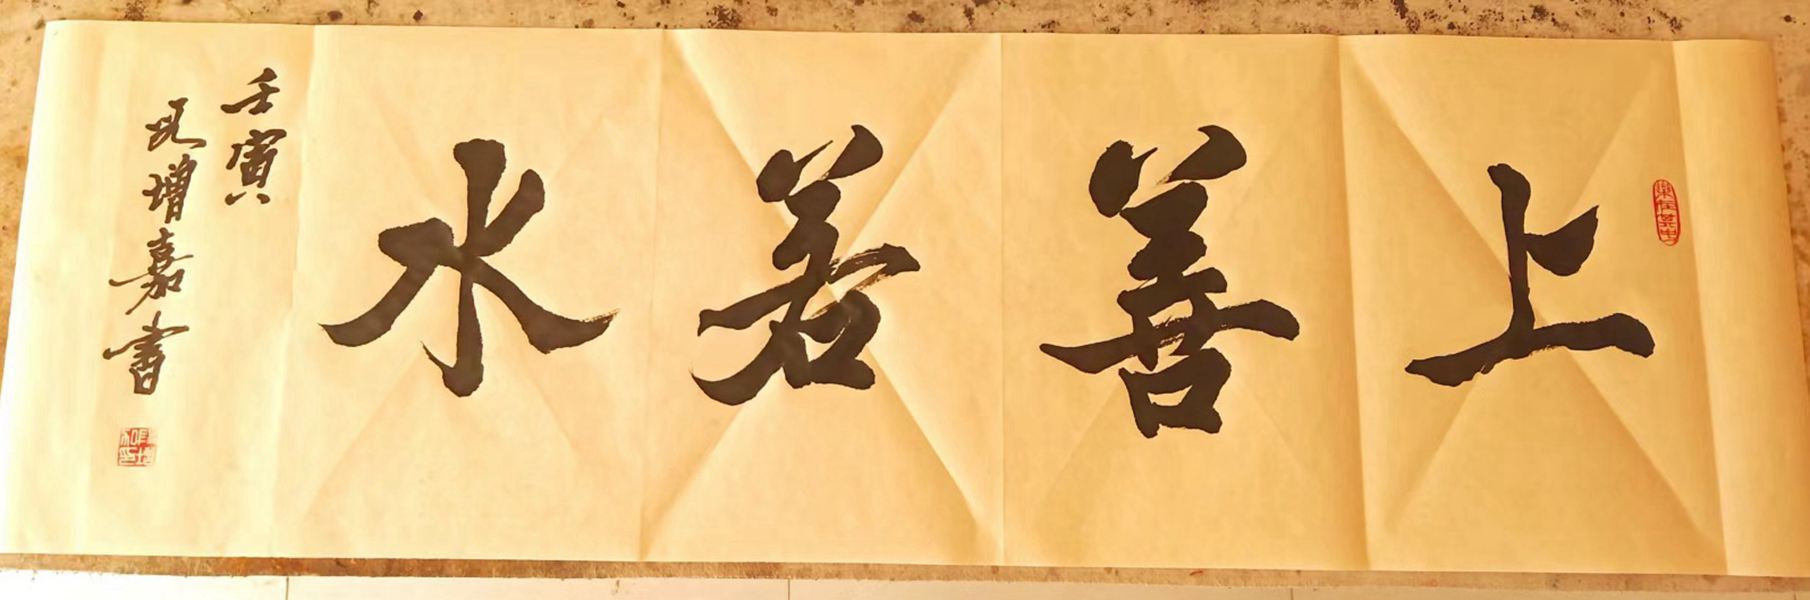 上善若水
壬寅
增嘉書